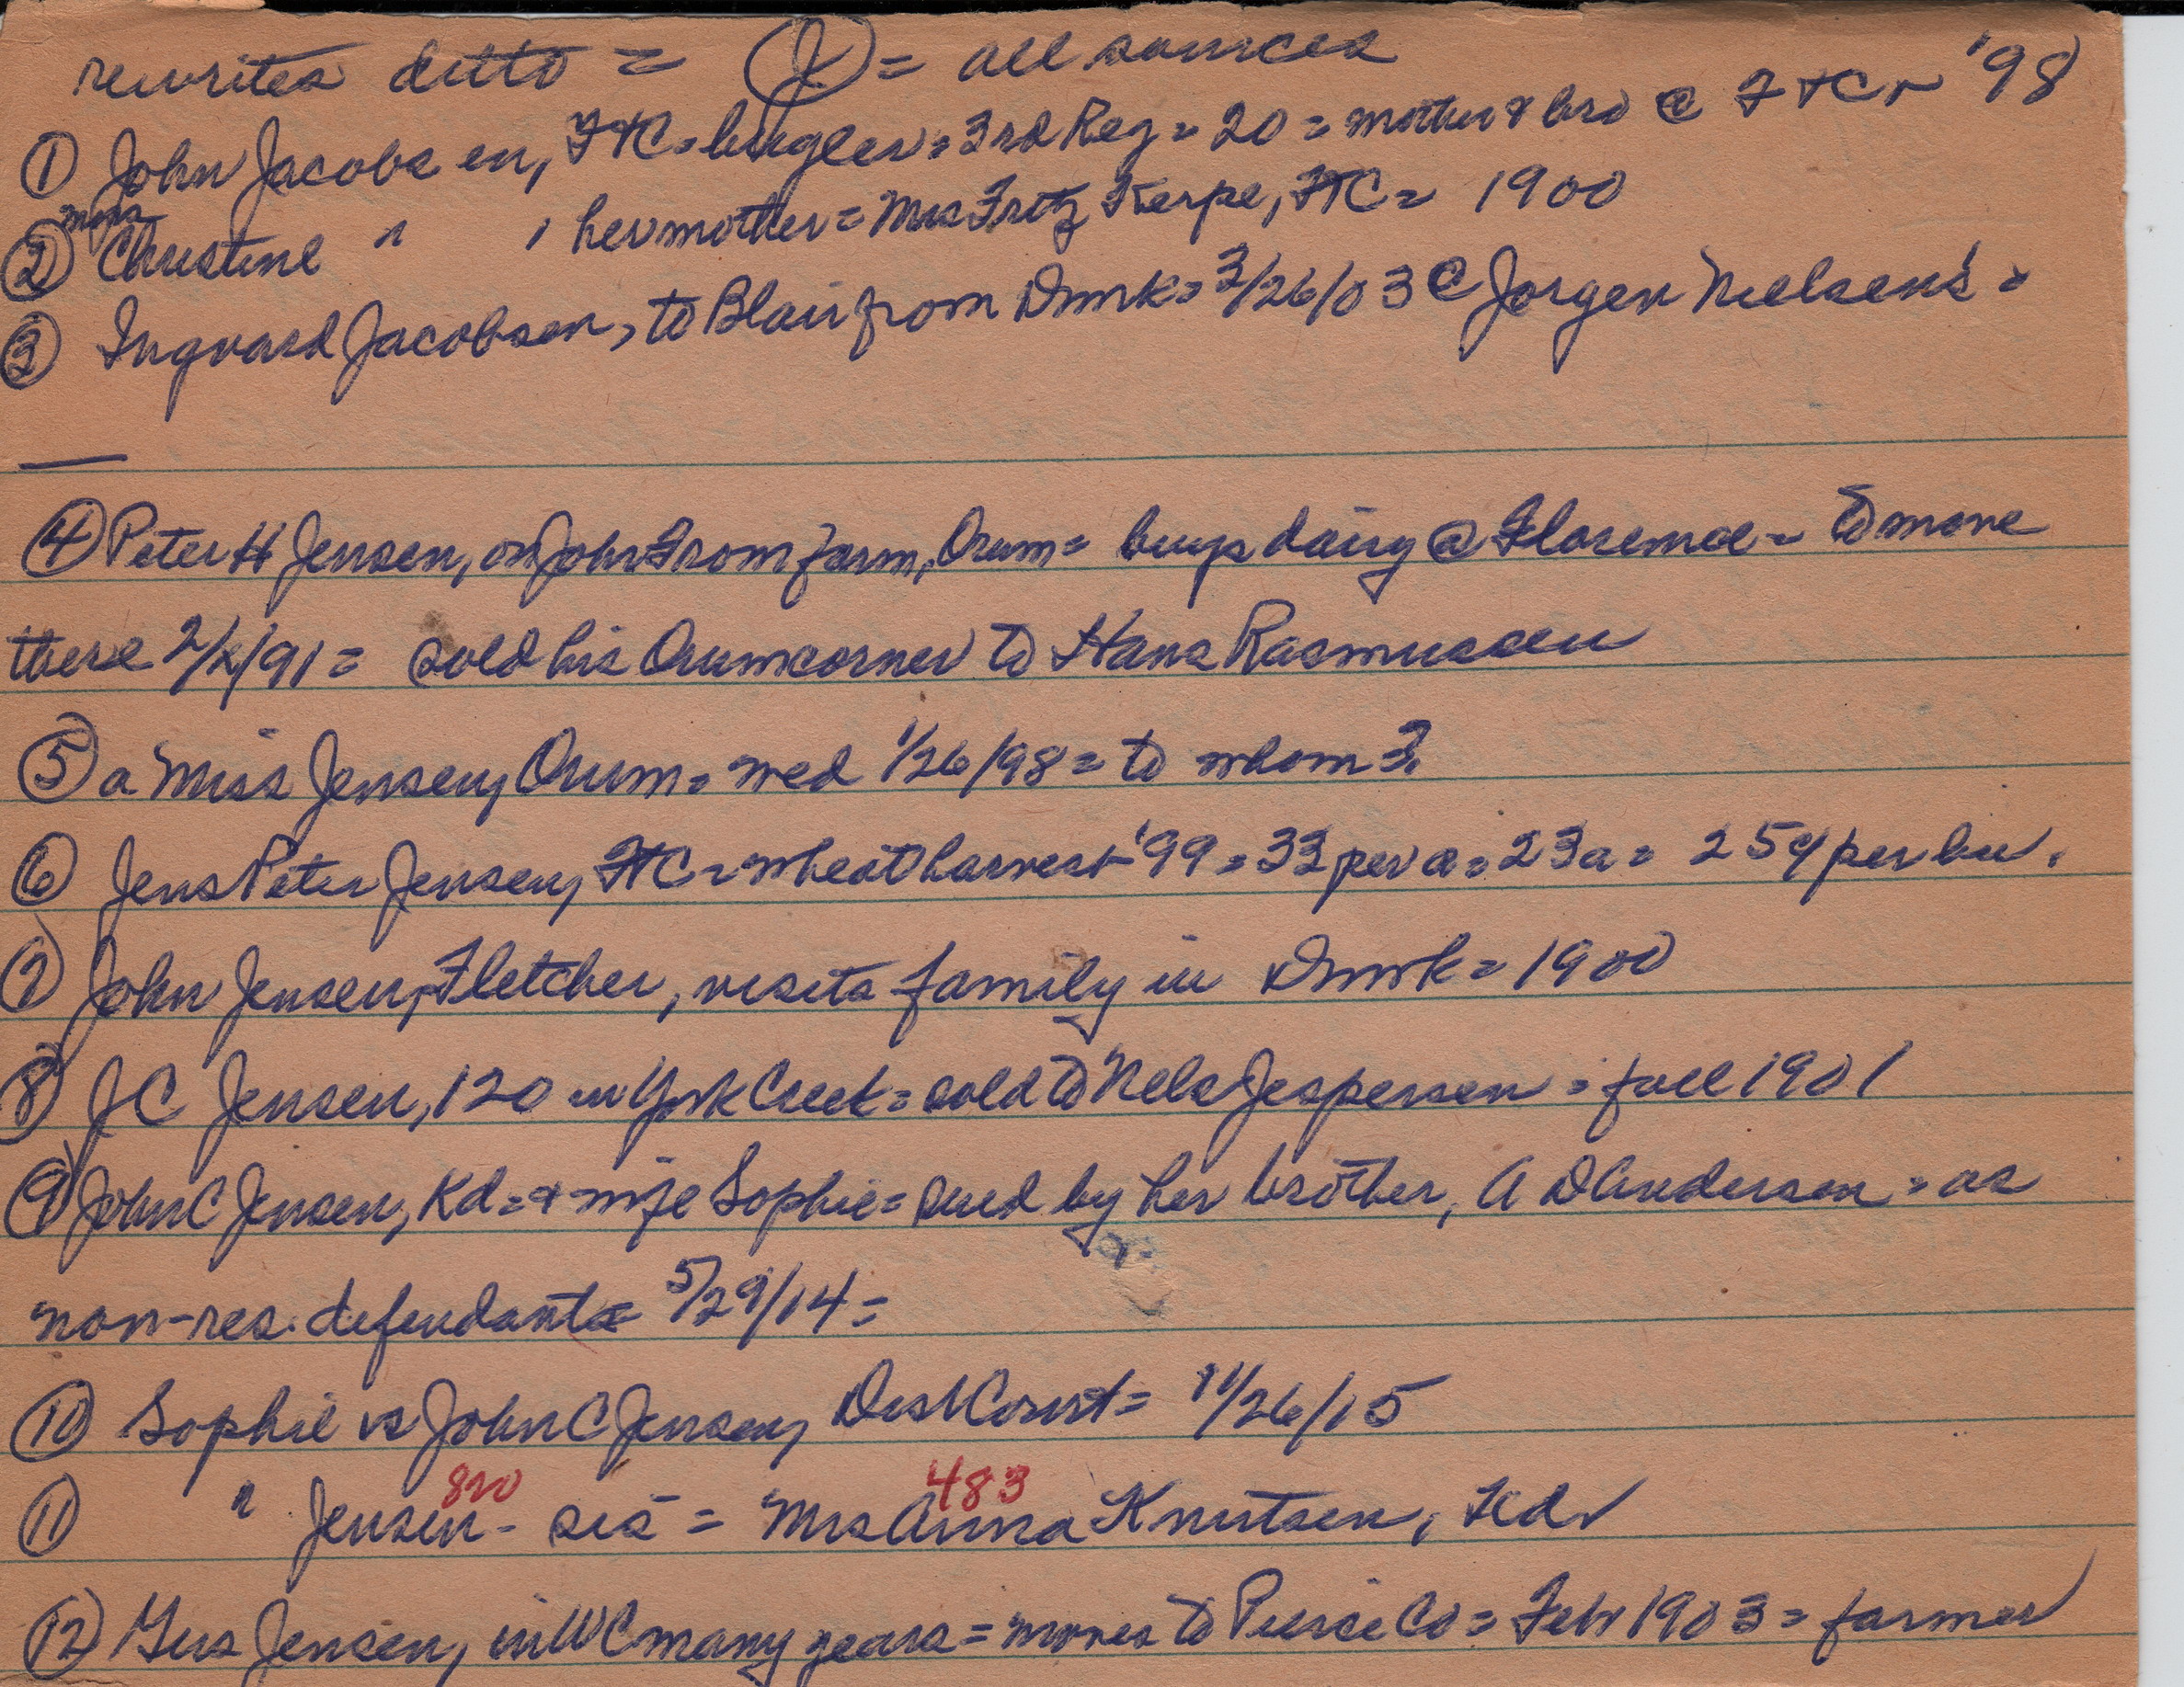 rewrites ditto = (J) = all sources
① John Jacobsen, FtC = bugler = 3rd Reg = 20 = mother & bro @ FtC = '98
② mrs Christine " , her mother = Mrs Fritz Kerpe, FtC = 1900
③ Ingvard Jacobsen, to Blair from Dnmk = 3/26/03 @ Jorgen Nielsen's =
④ Peter H Jensen, on John From farm, Orum = buys dairy @ Florence = to move
there 2/2/91 = sold his Orum corner to Hans Rasmussen
⑤ a Miss Jensen, Orum = wed 1/26/98 = to whom?
⑥ Jens Peter Jensen, FtC = wheat harvest '99 = 33 per a = 23a = 25¢ per bu.
⑦ John Jensen, Fletcher, visits family in Dnmk = 1900
⑧ J C Jensen, 120 in York Creek = sold to Nels Jespersen = fall 1901
⑨ John C Jensen, Kd = & wife Sophie = sued by her brother, A D Andersen = as
non-res. defendants = 5/29/14 =
⑩ Sophie vs John C Jensen, Dist Court = 11/26/15
820 483
⑪ " Jensen - sis = Mrs Anna Knutsen, Kd
⑫ Gus Jensen, in WC many years = moves to Pierce Co = Feb 1903 = farmer